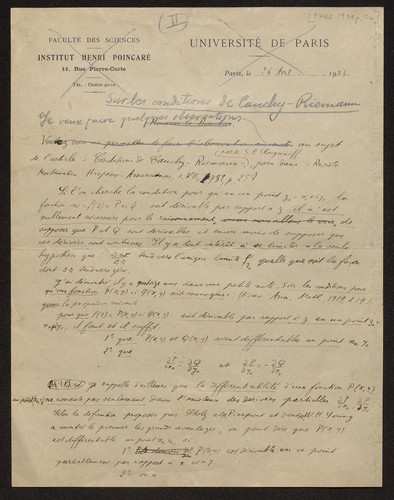 II
FACULTÉ DES SCIENCES
INSTITUT HENRI POINCARÉ
11, Rue Pierre-Curie
UNIVERSITÉ DE PARIS
Paris, le 24 193
Sur les conditions de Cauchy-Riemann
Je veux faire quelques observations
au sujet
de l'article : Condition de Cauchy, Riemann, paru dans : Revista
Matematica Hispano-Americana t. VII, 1932, p. 157
Si l'on cherche la condition pour qu'en un point z₀ = x₀ + i y₀ la
fonction w = f(z) = P + i Q soit dérivable par rapport à z il n'est
nullement nécessaire pour le raisonnement, de
supposer que P et Q sont dérivables et encore moins de supposer que
ces dérivées sont continues. Il y a tout intérêt à se limiter à la seule
hypothèse que Δw/Δz tend vers l'unique limite quelle que soit la façon
dont Δz tend vers zéro.
J'ai démontré il y a ans dans une petite note. Sur les conditions pour
qu'une fonction P(x,y) + i Q(x,y) soit monogène (Nouv. Ann. Math. 1919
que la proposition suivante
pour que f(z) = P(x,y) + i Q(x,y) soit dérivable par rapport à z en un point z₀ =
il faut et il suffit
1° que P(x,y) et Q(x,y) soient différentiables au point
2° que
∂P/∂x₀ = ∂Q/∂y₀ et ∂P/∂y₀ = -∂Q/∂x₀
je rappelle d'ailleurs que la différentiabilité d'une fonction P(x,y)
ne consiste pas seulement dans l'existence des dérivées partielles ∂P/∂x₀ ∂P/∂y₀
la définition proposée par Stolz et Pierpont et dont W. H. Young
a montré le premier les grands avantages, on peut dire que P(x,y)
est différentiable au point x₀, y₀ si
1° P(x,y) est dérivable en ce point
partiellement par rapport à x et à y
2° on a